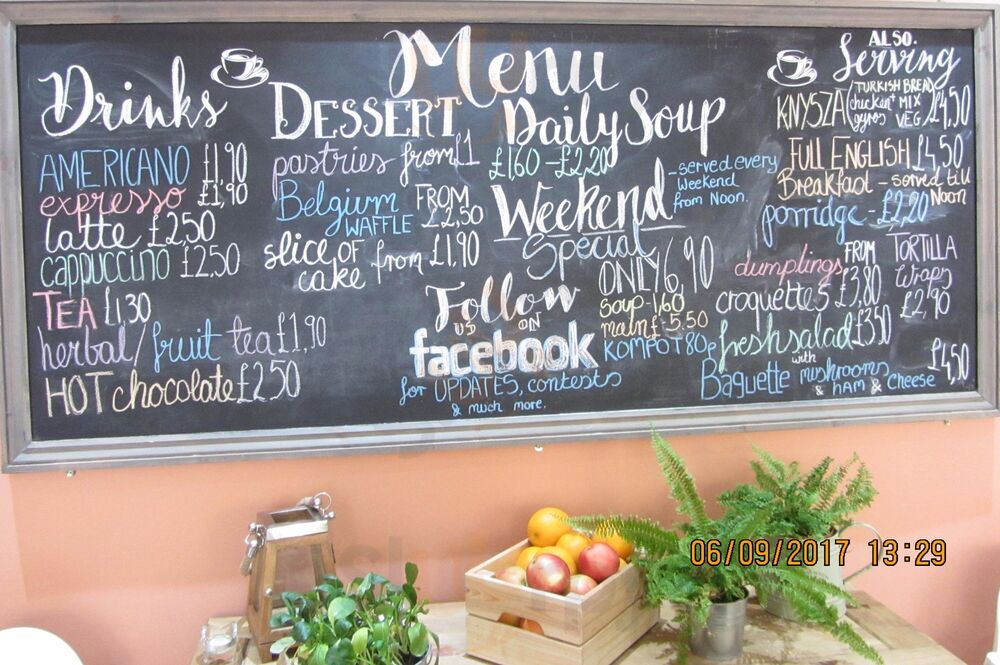 Menu
Drinks
AMERICANO £1,90
expresso £1,90
latte £2,50
cappuccino £2,50
TEA £1,30
herbal/fruit tea £1,90
HOT chocolate £2,50
DESSERT
pastries from £1
Belgium
WAFFLE
FROM
£2,50
slice OF
cake from £1,90
Daily Soup
£1,60 - £2,20
Weekend
Special
- served every
Weekend
from Noon.
ONLY 6,90
soup - 1,60
main £ - 5.50
KOMPOT 80p
Follow
US ON
facebook
for UPDATES, contests
& much more.
ALSO.
Serving
KNYSZA (TURKISH BREAD
chicken + MIX
gyros VEG) £4,50
FULL ENGLISH £4,50
Breakfast - served till
Noon
porridge - £2,20
dumplings FROM
£3,80
croquettes
TORTILLA
Wraps
£2,90
fresh salad £3,50
Baguette with mushrooms
& HAM & cheese
£4,50
06/09/2017 13:29